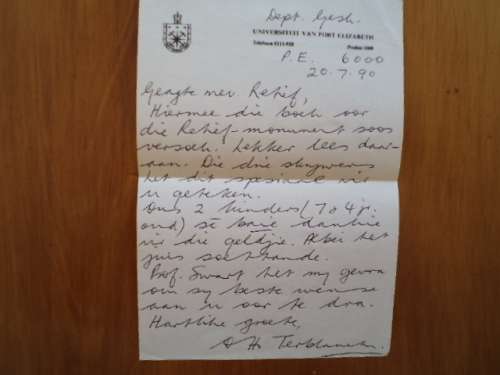 Dept. Gesk.
UNIVERSITEIT VAN PORT ELIZABETH
P.E. 6000
20.7.90
Geagte mev. Retief,
Hiermee die boek oor
die Retief-monument soos
versoek. Lekker lees daar-
aan. Die drie skrywers
het dit spesiaal vir
u geteken.
Ons 2 kinders (7 & 4 jr.
oud) sê baie dankie
vir die geldjie. Albei het
juis soethande.
Prof. Swart het my gevra
om sy beste wense
aan u oor te dra.
Hartlike groete,
Terblanche